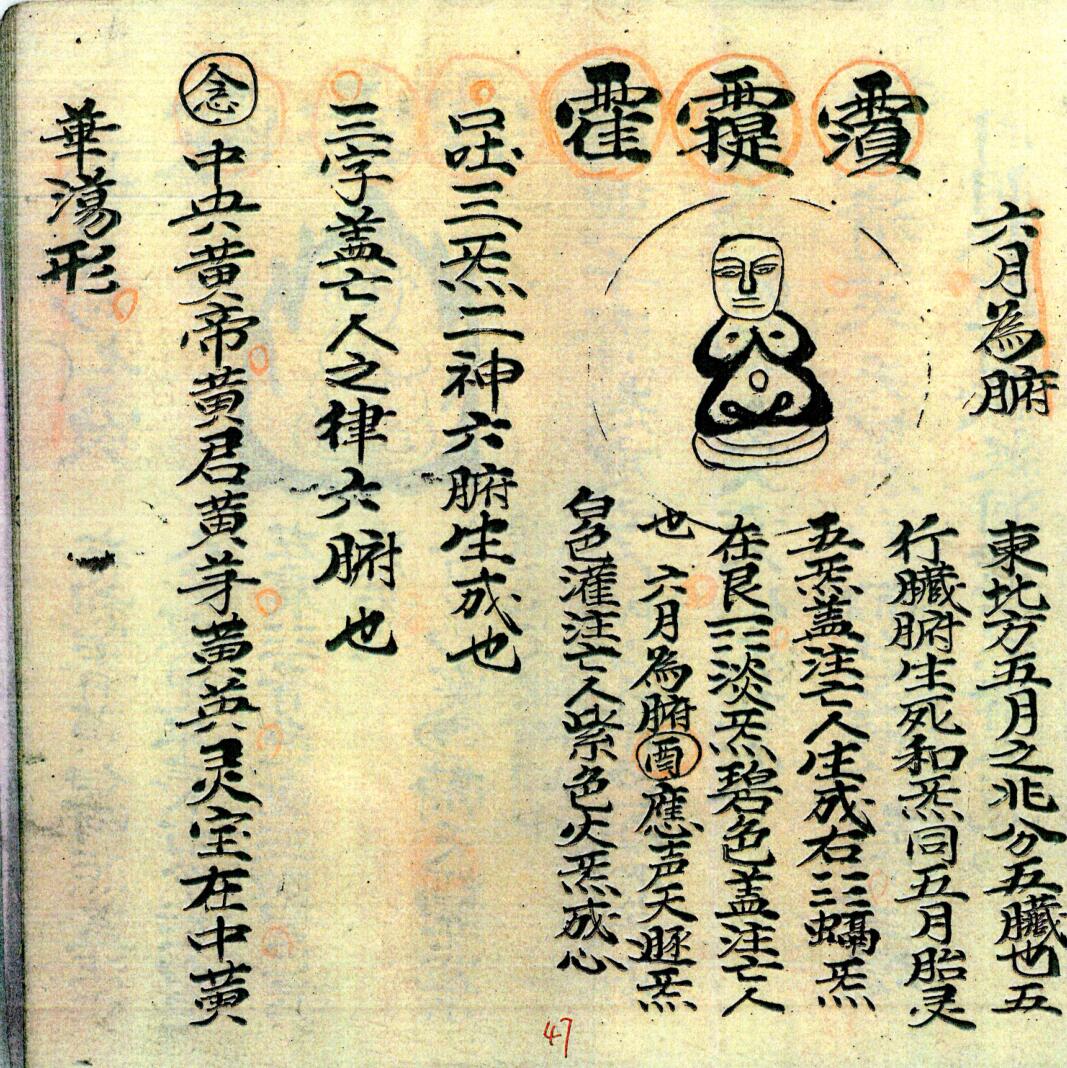 六月為腑
東北方五月之兆分五臟也五
行臟腑生死和炁同五月胎灵
五炁蓋注亡人生成右三螎炁
在艮二淡炁碧色蓋注亡人
也 六月為腑酉應声天豚炁
白色灌注亡人紫色火炁成心
霣
三炁二神六腑生成也
三字蓋亡人之律六腑也
念中央黄帝黄君黄芽黄英灵宝在中黄
華蕩形
47